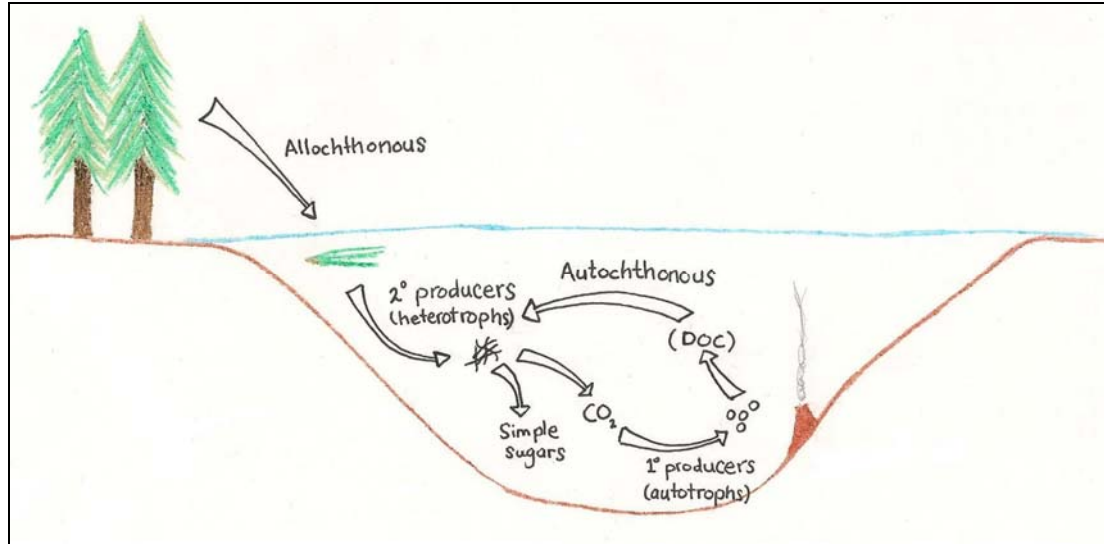 Allochthonous
Autochthonous
2° producers
(heterotrophs)
(DOC)
CO₂
Simple
sugars
1° producers
(autotrophs)